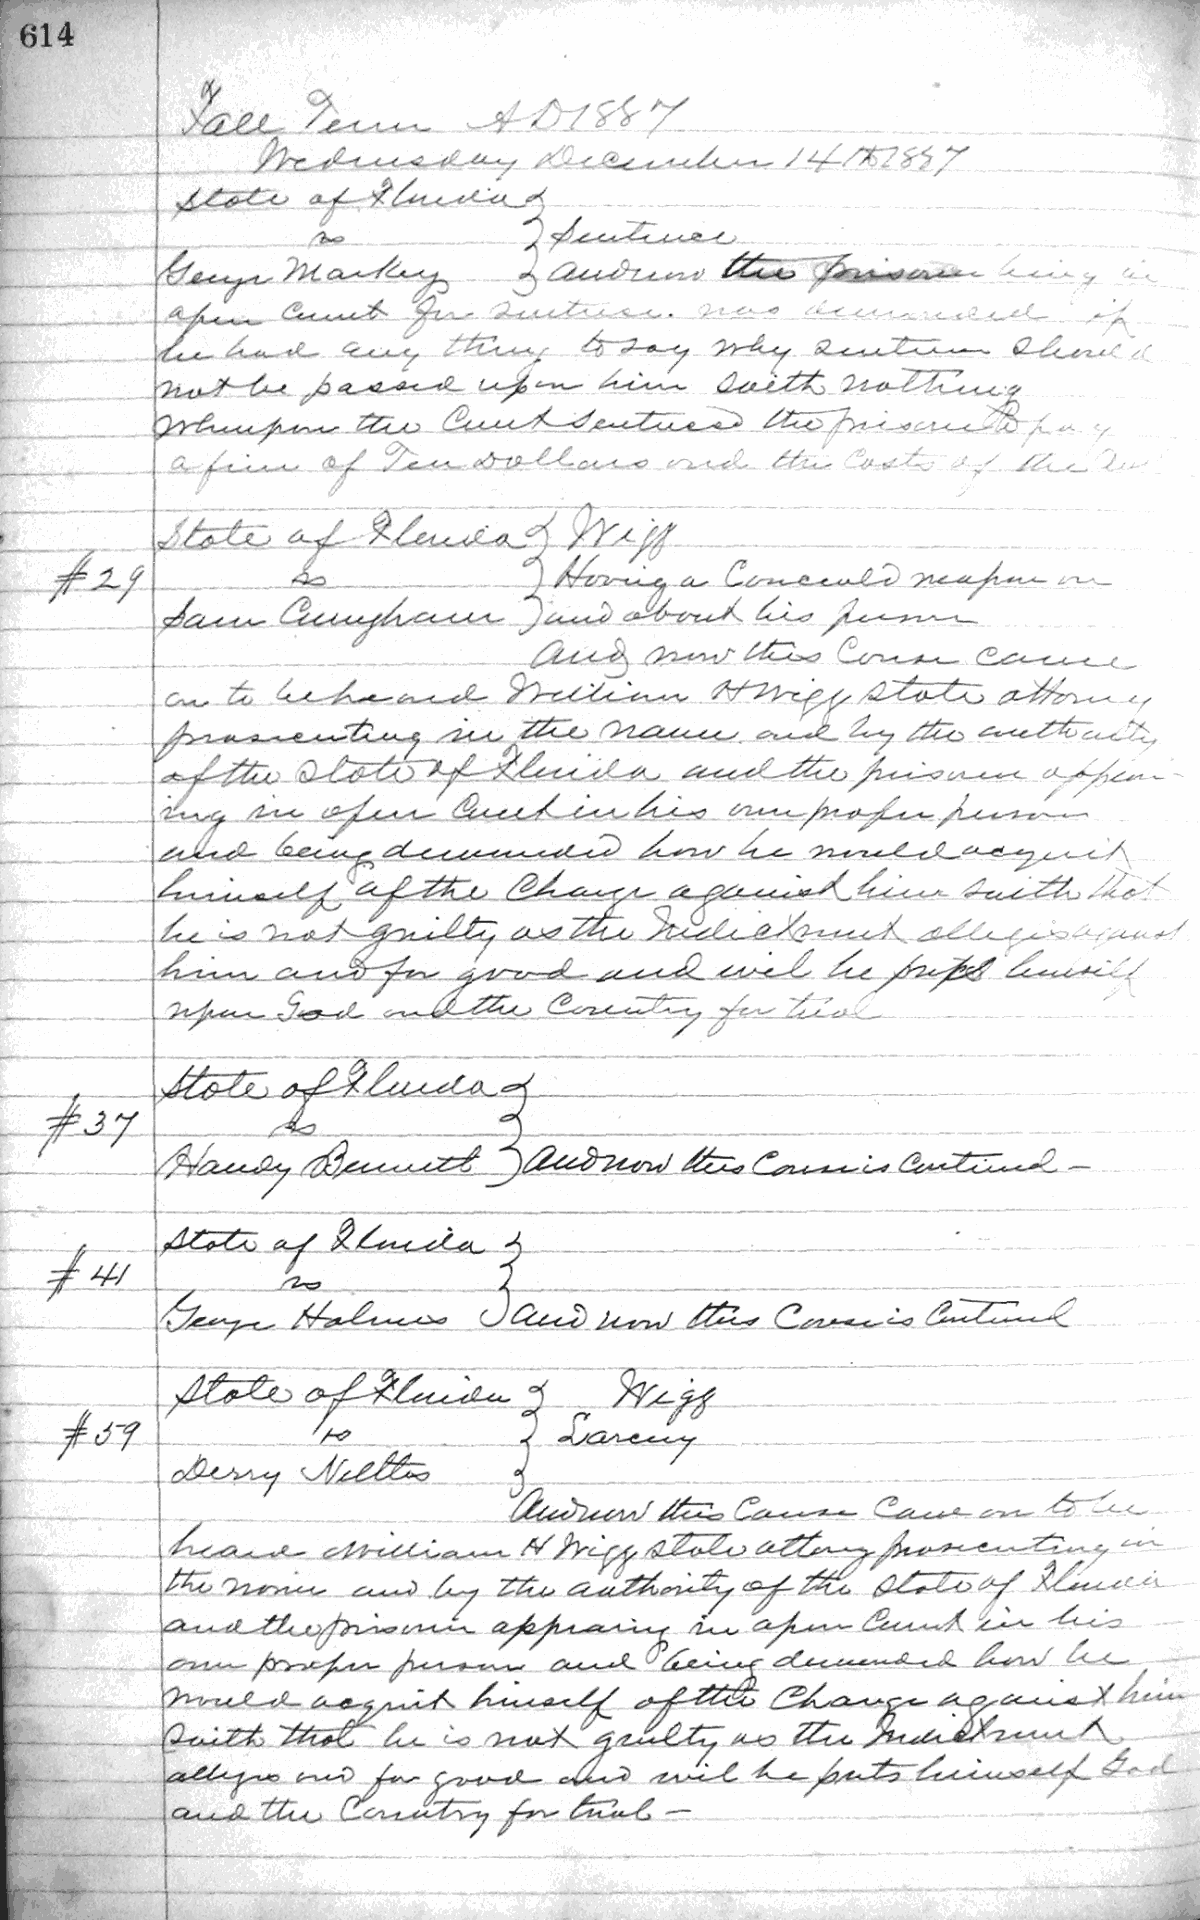 614
Fall Term AD 1887
Wednesday December 14th 1887
State of Florida }
vs } Sentence
George Markey } and now the prisoner being in
open Court for sentence. was demanded if
he had any thing to say why sentence should
not be passed upon him saith nothing
Whereupon the Court sentenced the prisoner to pay
a fine of Ten Dollars and the Costs of the
State of Florida } Wigg
#29 vs } Having a Conceald weapon on
Sam Cunyham } and about his person
And now this Cause came
on to be heard William H Wigg State attorny
prosecuting in the name and by the authority
of the State of Florida and the prisoner appear-
ing in open Court in his own proper person
and being demanded how he would acquit
himself of the Charge against him saith that
he is not guilty as the Indictment alleges against
him and for good and evil he puts himself
upon God and the Country for trial
State of Florida }
#37 vs }
Handy Bennett } and now this Cause is Continued –
State of Florida }
#41 vs }
George Holmes } and now this Cause is Continued
State of Florida } Wigg
#59 vs } Larceny
Derry }
And now this Cause Came on to be
heard William H Wigg State attorny prosecuting in
the name and by the authority of the State of Florida
and the prisoner appearing in open Court in his
own proper person and being demanded how he
would acquit himself of the Charge against him
saith that he is not guilty as the Indictment
alleges and for good and evil he puts himself God
and the Country for trial –